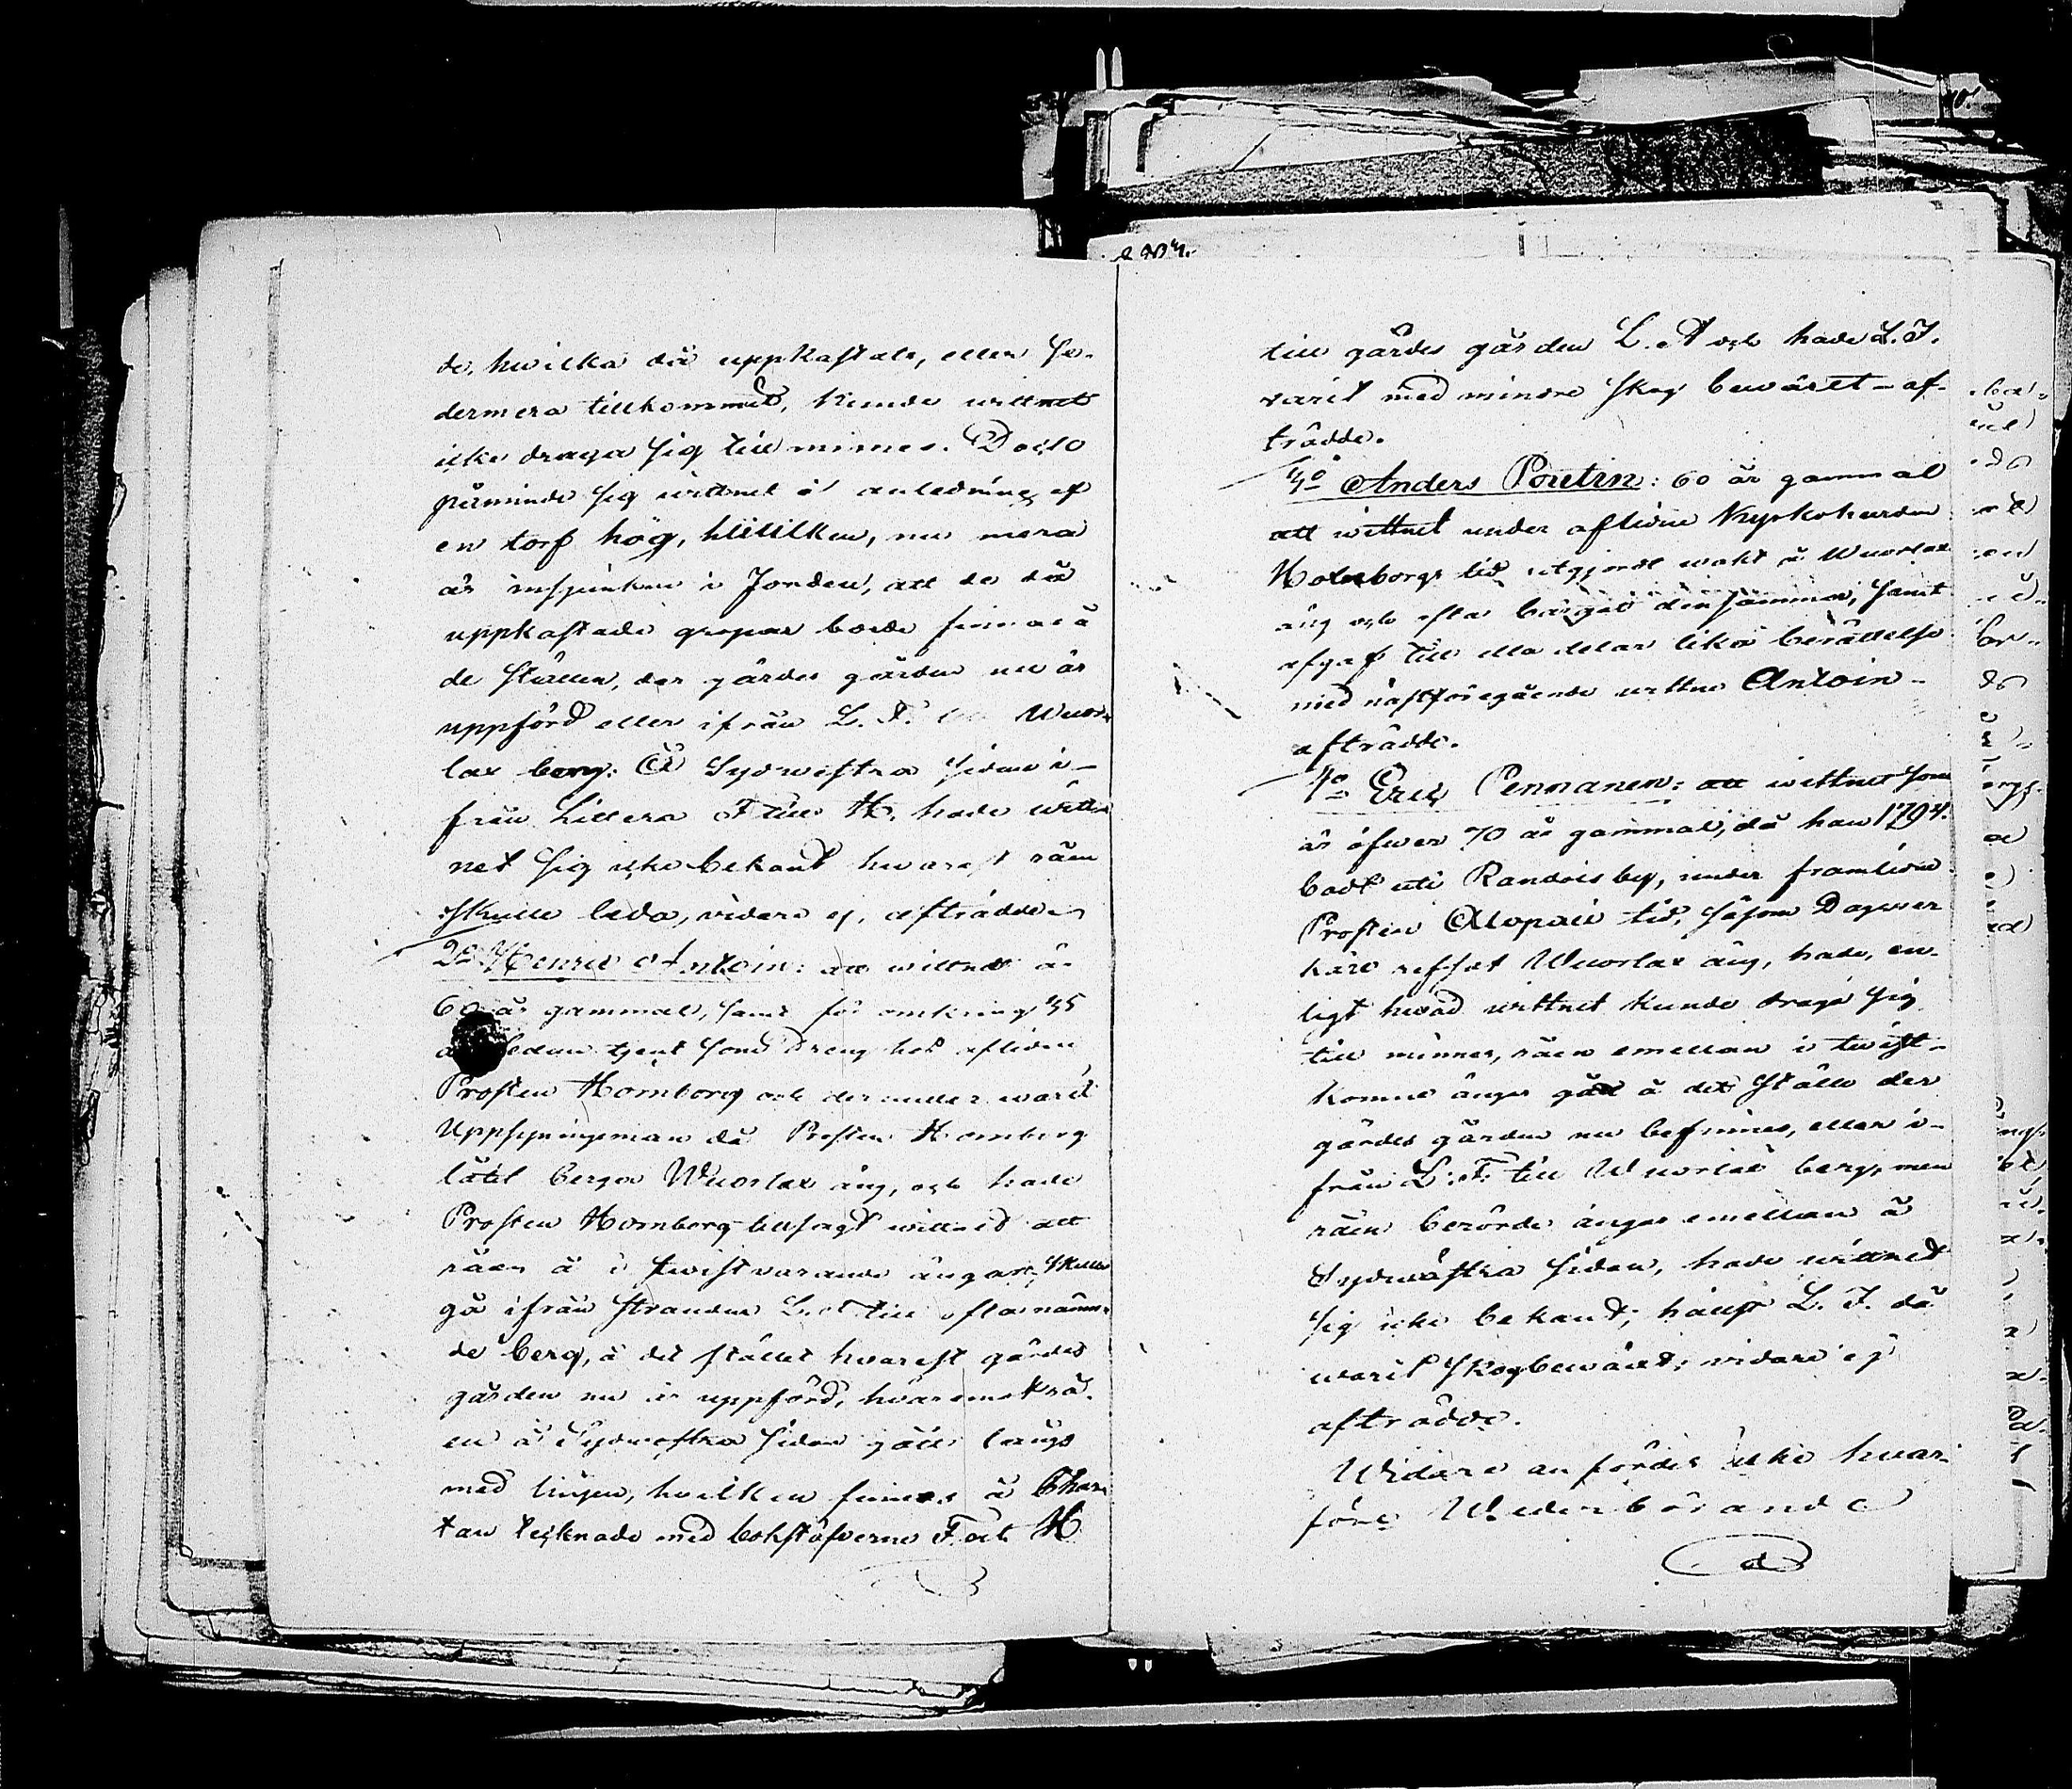 de, hwilka då uppkastats, eller se-
dermera tillkommit, kunde wittnet
icke draga sig till minnes. Dock
påminde sig wittnet i anledning af
en torf hög, hwilken, nu mera
är insjunken i Jorden, att de då
uppkastade gropar borde finnas å
de ställen, der gärdes gården nu är
uppförd eller ifrån L. F. Wuor-
lax berg: Å Sydwestra sidan i-
från Littera F till H. hade witt-
net sig icke bekant hwarest råen
skulle leda, vidare ej, afträdde
2o Henric Antoin: att wittnet är
60 år gammal, samt för omkring 45
sedan tjent som dreng hos afliden
Prosten Homborg och derunder warit
Uppsyningsman då Prosten Homborg
låtit berga Wuorlax äng, och hade
Prosten Homborg tillsagt wittnet att
råen å i twist varande ängar, skulle
gå ifrån stranden L. till oftanämn-
de berg, å det stället hwarest gärdes
gården nu är uppförd, hwaremot rå-
en å Sydwestra sidan gått längs
med linjen, hwilken finnes å Char-
tan tecknade med bokstäfverne F och H
till gärdes gården L. A och hade L. F.
varit med mindre skog bewäxt - af-
trädde.
Anders Poutin: 60 år gammal
att wittnet under aflidne Kyrkoherden
Homborgs tid utgjordt wakt å Wuorlax
äng och ofta bärgat densamma, samt
afgaf till alla delar lika berättelse
med nästföregående wittne Antoin -
afträdde.
4o Eric Pennanen: att wittnet som
är öfwer 70 år gammal, då han 1794.
bodt uti Randois by, under framlidne
Prosten Alopaei tid, såsom Dagswer
kare refsat Wuorlax äng, hade, en-
ligt hwad wittnet kunde draga sig
till minnes, råen emellan i twist-
komne ängar gått å det ställe der
gärdes gården nu befinnes, eller i-
från L: F. till Wuorlax berg, men
råen berörde ängar emellan å
Sydwästra sidan, hade wittnet
sig icke bekant; L. F. då
warit skogbewäxt; vidare ej
afträdde.
Widare anfördes icke hwar-
före Wederbörande